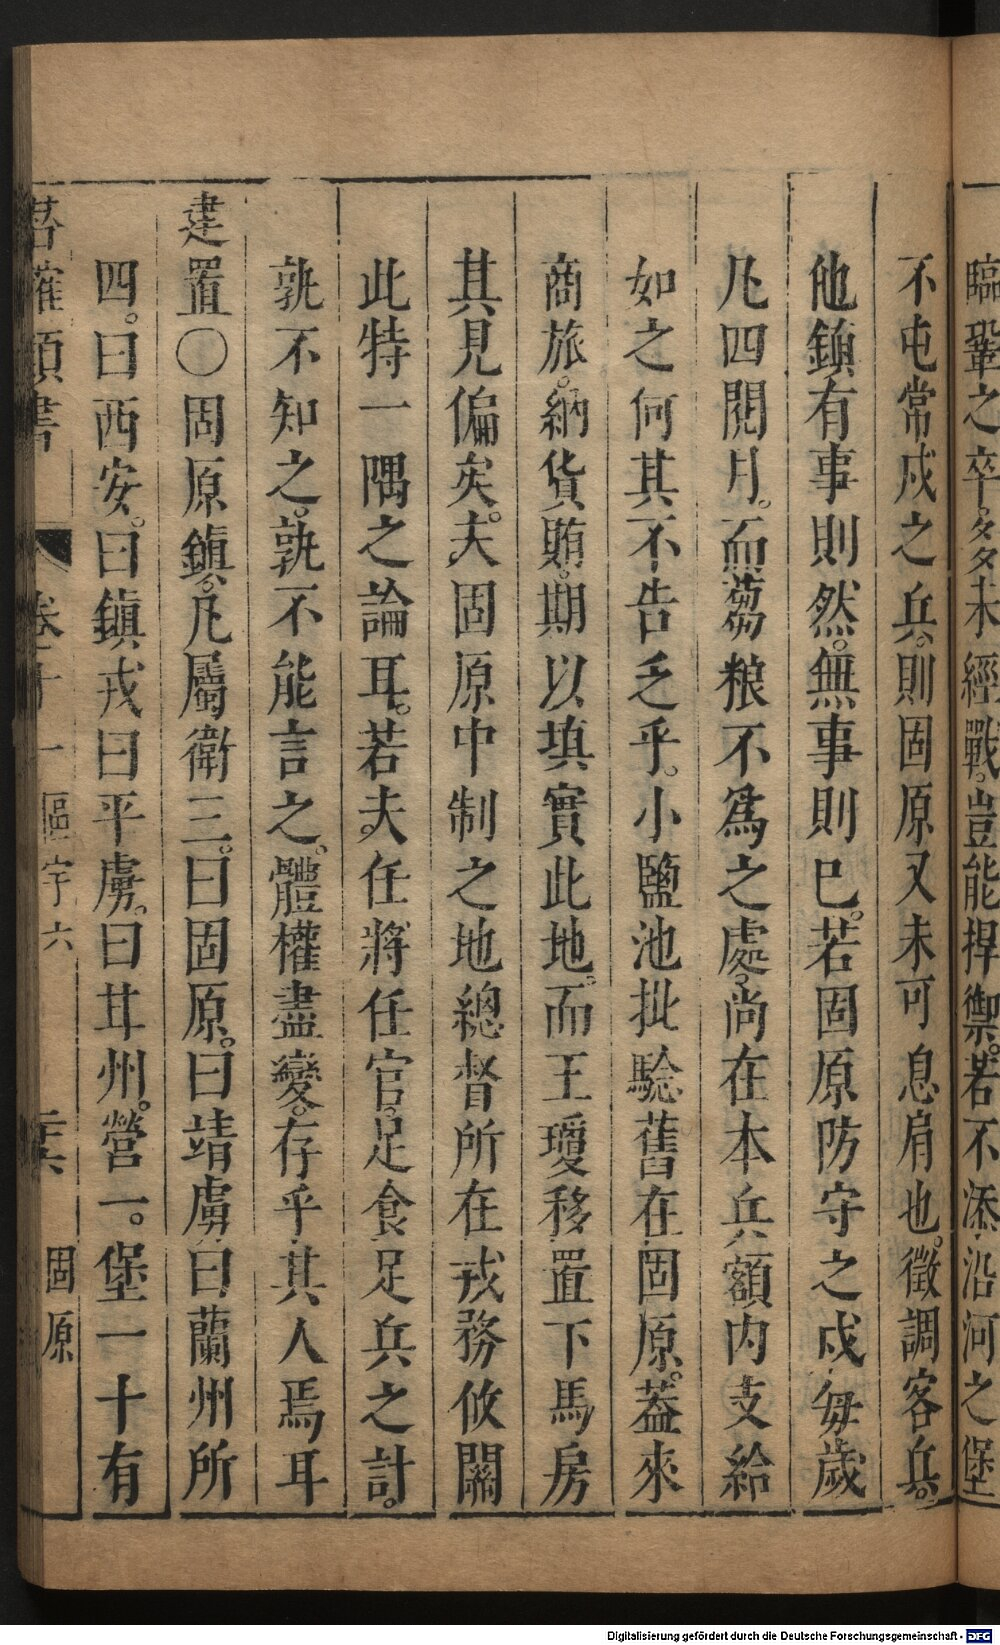 臨鞏之卒多未經戰豈能捍禦若不添沿河之堡
不屯常戍之兵則固原又未可息肩也徵調客兵
他鎮有事則然無事則已若固原防守之戍每歲
凡四閱月而芻粮不爲之處尚在本兵額内支給
如之何其不告乏乎小鹽池批驗舊在固原蓋來
商旅納貨賄期以填實此地而王瓊移置下馬房
其見偏矣夫固原中制之地總督所在戎務攸關
此特一隅之論耳若夫任將任官足食足兵之計
孰不知之孰不能言之體權盡變存乎其人焉耳
建置〇固原鎮凡屬衛三曰固原曰靖虜曰蘭州所
四曰西安曰鎮戎曰平虜曰甘州營一堡一十有
卷十一 區宇六 固原
Digitalisierung gefördert durch die Deutsche Forschungsgemeinschaft - DFG